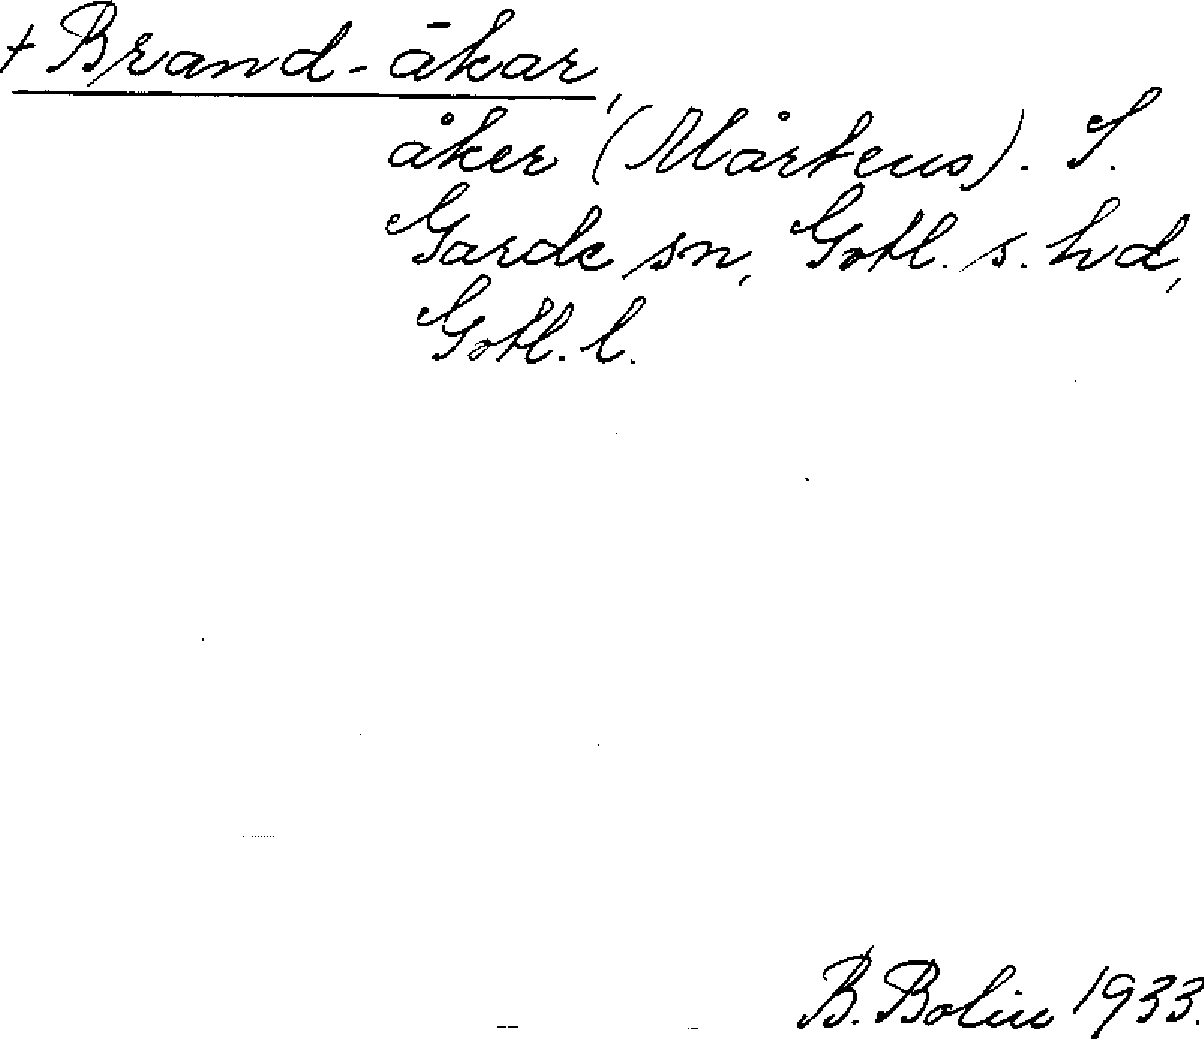 + Brand-åkar,
åker (Mårtens). S.
Garde sn, Gotl. s. hd,
Gotl. l.
B. Bolin 1933.